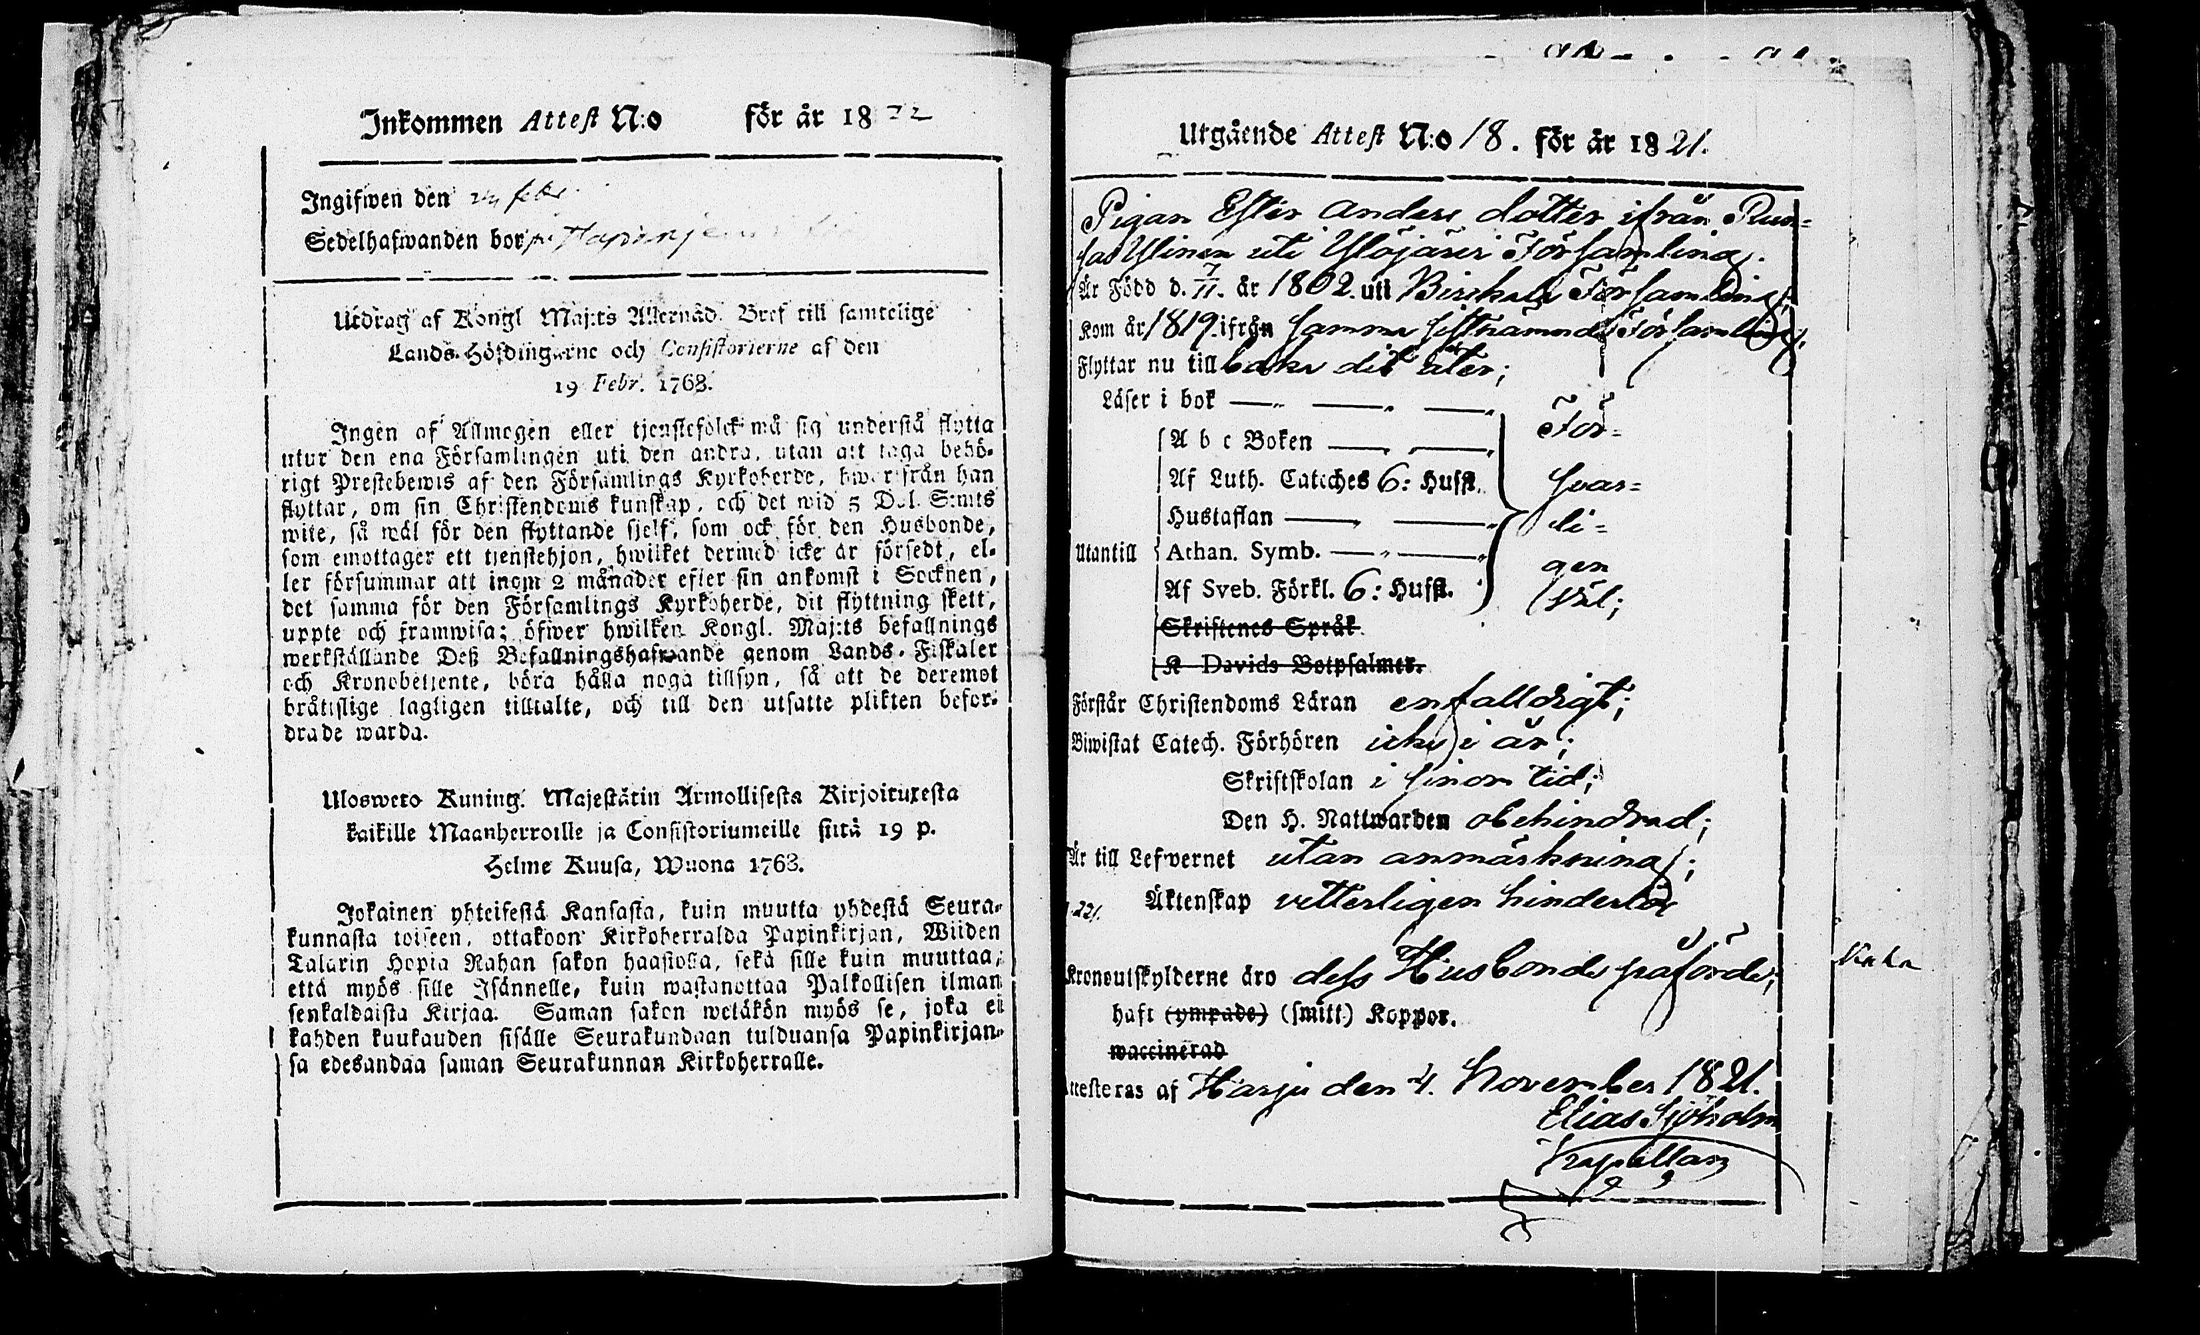 Inkommen Attest N:o för år 1822
Ingifwen den 24 febr.
Sedelhafwanden bor på
Utdrag af Kongl Maj:ts Allernåd. Bref till samtelige
Lands-Höfdingarne och Consistorierne af den
19 Febr. 1768.
Ingen af Allmogen eller tjenstefolck må sig understå flytta
utur den ena Församlingen uti den andra, utan att taga behö-
rigt Prestebewis af den Församlings Kyrkoherde, hwarifrån han
flyttar, om sin Christendoms kunskap, och det wid 5 Dal. S:mts
wite, så wäl för den flyttande sjelf, som ock för den Husbonde,
som emottager ett tjenstehjon, hwilket dermed icke är försedt, el-
ler försummar att inom 2 månader efter sin ankomst i Socknen,
det samma för den Församlings Kyrkoherde, dit flyttning skett,
uppte och framwisa; öfwer hwilken Kongl. Maj:ts befallnings
werkställande Deß Befallningshafwande genom Lands-Fiskaler
och Kronobetjente, böra hålla noga tillsyn, så att de deremot
bråtislige lagligen tilltalte, och till den utsatte plikten befor-
drade warda.
Uloswero Kuning. Majestätin Armollisesta Kirjoituxesta
kaikille Maanherroille ja Consistoriumeille siitä 19 p.
Helme Kuusa, Wuona 1763.
Jokainen yhteisestä Kansasta, kuin muutta yhdestä Seura-
kunnasta toiseen, ottakoon Kirkoherralda Papinkirjan, Wiiden
Talarin Hopia Rahan sakon haastolla, sekä sille kuin muuttaa,
että myös sille Isännelle, kuin wastanottaa Palkollisen ilman
senkaldaista Kirjaa. Saman sakon wetäkön myös se, joka ei
kahden kuukauden sisälle Seurakundaan tulduansa Papinkirjan-
sa edesandaa saman Seurakunnan Kirkoherralle.
Utgående Attest N:o 18. för år 1821.
Pigan Ester Anders dotter ifrån Run-
sas Ylinen uti Ylöjärvi Församling.
Är Född d. 7/11. år 1802. uti Birkala Församling;
Kom år 1819. ifrån samma sistnämnde Församling;
Flyttar nu till baka dit åter;
Läser i bok
A b c Boken
Af Luth. Cateches 6: Hufst.
Hustaflan
Utantill Athan. Symb.
Af Sveb. Förkl. 6: Hufst.
Skriftenes Språk
K Davids Botpsalmer.
För-
svar-
li-
gen
väl;
Förstår Christendoms Läran enfalldigt;
Biwistat Catech. Förhören icke i år;
Skriftskolan i sinom tid;
Den H. Nattwarden obehindrad;
Är till Lefwernet utan anmärkning;
Äktenskap vetterligen hinderlös
Kronoutskylderne äro dess Husbonde påförde;
haft (ympade) (smitt.) Koppor.
waccinerad
Attesteras af Harju den 4. November 1821.
Elias Sjöholm
Kapellan